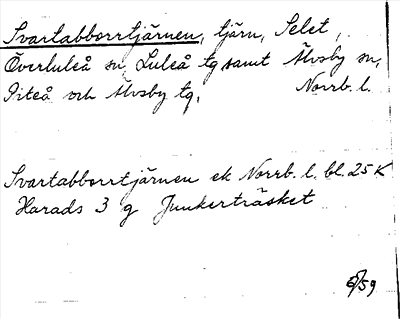 Svartabborrtjärnen, tjärn, Selet,
Överluleå sn, Luleå tg samt Älvsby sn,
Piteå och Älvsby tg, Norrb. l.
Svartabborrtjärnen ek Norrb. l. bl. 25 K
Harads 3 g Junkerträsket
/59